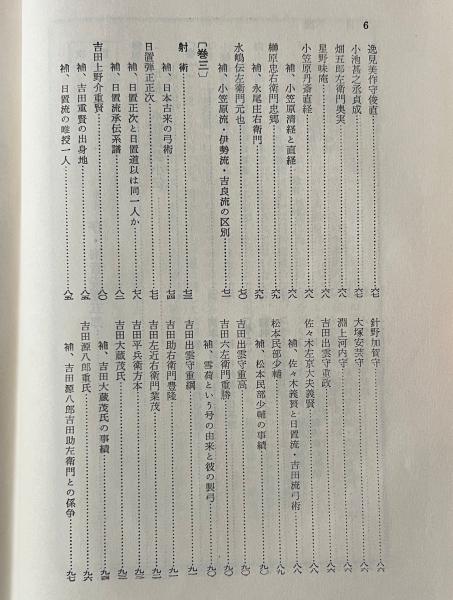 6
逸見美作守俊直……六七
小池甚之丞貞成……六七
畑五郎左衛門奥実……六八
星野味庵……六八
小笠原丹斎直経……六八
補、小笠原清経と直経……六八
榊原忠右衛門忠郷……六九
補、永尾庄右衛門……六九
水嶋伝左衛門元也……七〇
補、小笠原流・伊勢流・吉良流の区別……七一
〔巻三〕
射術……七三
補、日本古来の弓術……七四
日置弾正正次……七七
補、日置正次と日置道以は同一人か……七八
補、日置流承伝系譜……八二
吉田上野介重賢……八〇
補、吉田重賢の出身地……八五
補、日置流の唯授一人……八五
針野加賀守……八六
大塚安芸守……八六
淵上河内守……八六
吉田出雲守重政……八六
佐々木左京大夫義賢……八八
補、佐々木義賢と日置流・吉田流弓術……八八
松本民部少輔……八九
補、松本民部少輔の事績……九〇
吉田出雲守重高……九〇
吉田六左衛門重勝……九〇
補、雪荷という号の由来と彼の製弓……九〇
吉田出雲守重綱……九一
吉田助右衛門豊隆……九一
吉田左近右衛門業茂……九二
吉田平兵衛方本……九二
吉田大蔵茂氏……九三
補、吉田大蔵茂氏の事績……九四
吉田源八郎重氏……九六
補、吉田源八郎吉田助左衛門との係争……九七